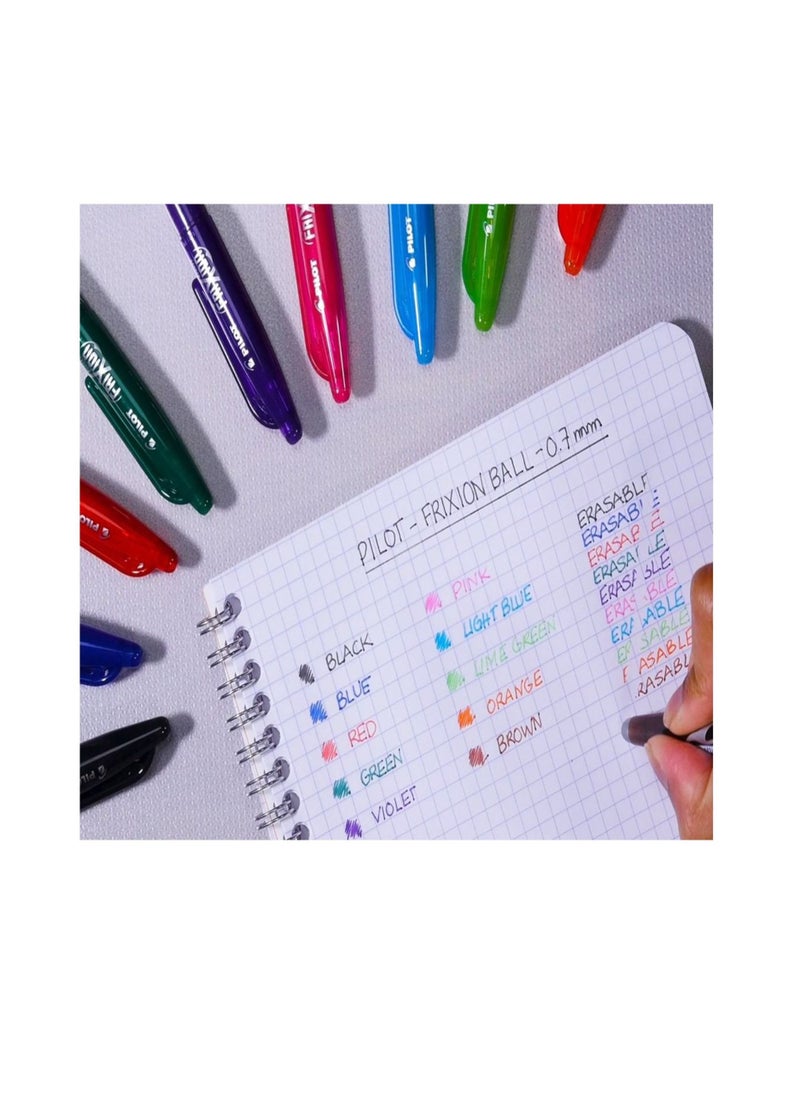 FRIXION
PILOT
FRIXION
PILOT
PILOT
PILOT
PILOT
PILOT
PILOT - FRIXION BALL - 0.7 mm
BLACK
BLUE
RED
GREEN
VIOLET
PINK
LIGHT BLUE
LIME GREEN
ORANGE
BROWN
ERASABLE
ERASAB E
ERASAB E
ERASA LE
ERASA BLE
ERAS BLE
ERA ABLE
E SABLE
E ASABLE
RASABL